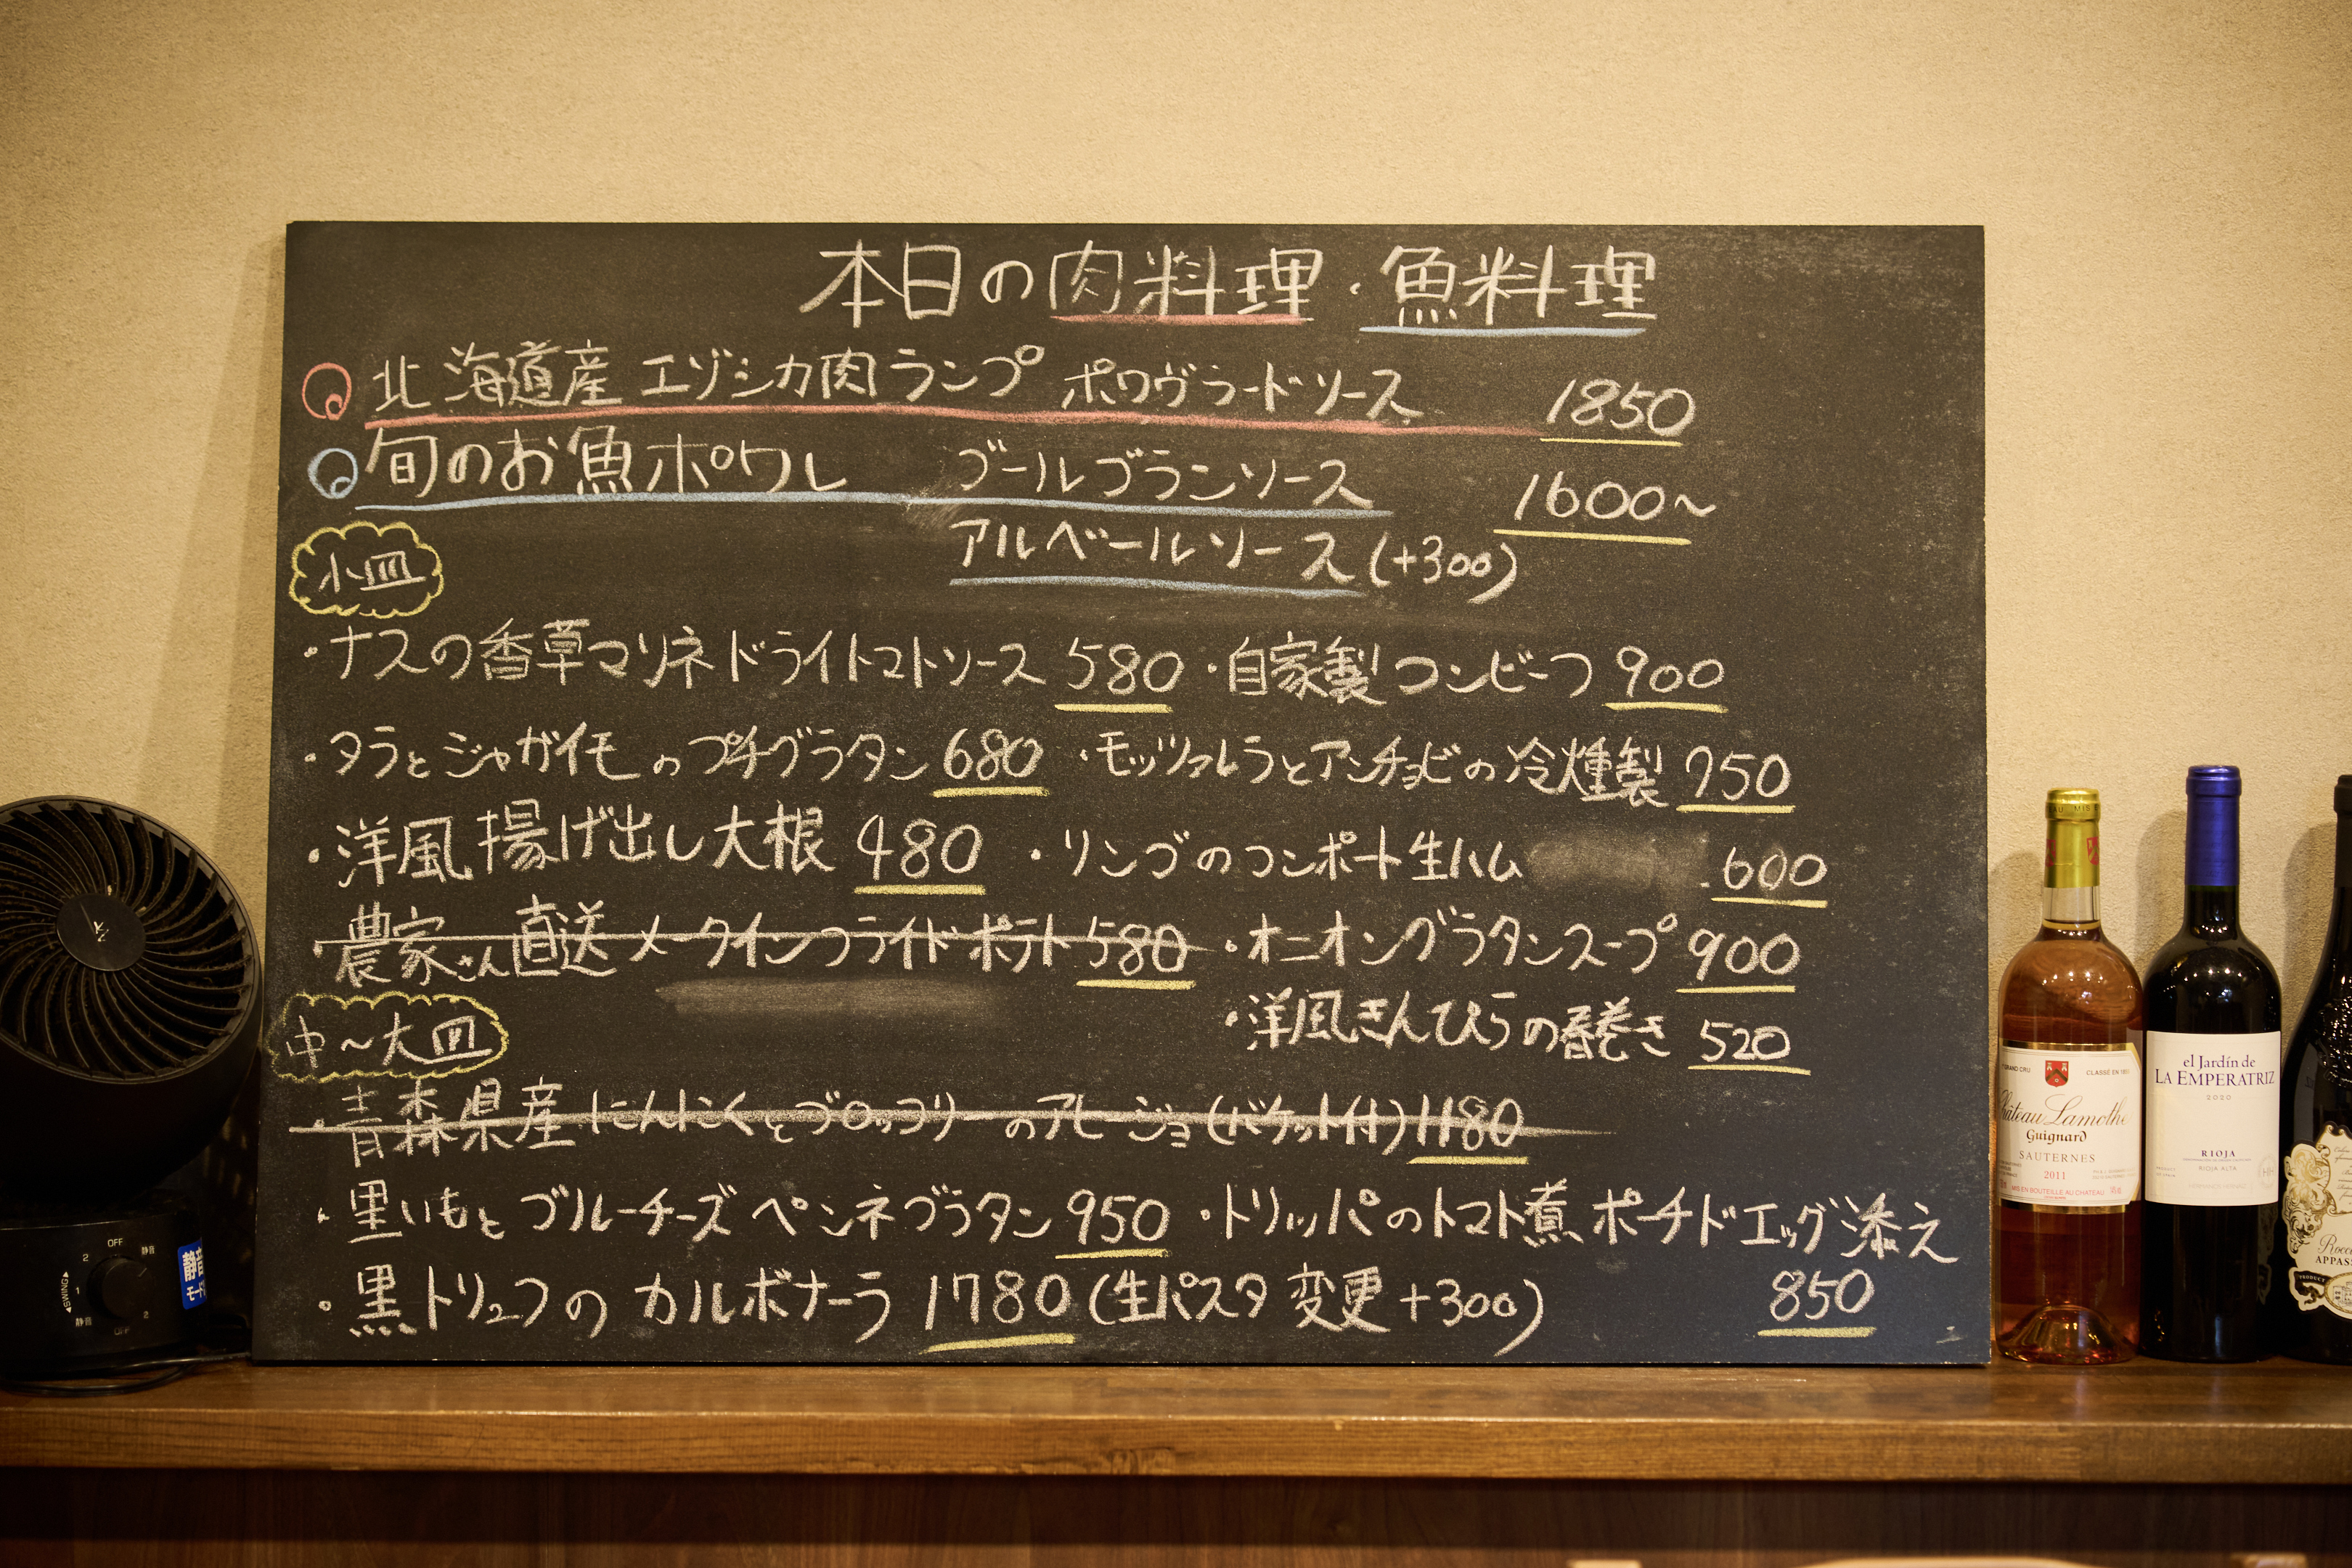 本日の肉料理・魚料理
北海道産 エゾシカ肉ランプ ポワヴラードソース 1850
旬のお魚ポワレ ブールブランソース 1600〜
アルベールソース(+300)
小皿
・ナスの香草マリネ ドライトマトソース 580 ・自家製コンビーフ 900
・タラとジャガイモのプチグラタン 680 ・モッツァレラとアンチョビの冷燻製 750
・洋風揚げ出し大根 480 ・リンゴのコンポート生ハム 600
・農家さん直送メークインフライドポテト 580 ・オニオングラタンスープ 900
・洋風きんぴらの春巻き 520
中〜大皿
・青森県産にんにくとブロッコリーのアヒージョ(バケット付) 1180
・里いもとブルーチーズ ペンネグラタン 950 ・トリッパのトマト煮 ポーチドエッグ添え
850
・黒トリュフのカルボナーラ 1780 (生パスタ変更+300)
OFF
静音
2
1
SWING
静音
OFF
2
静音
モード
GRAND CRU
CLASSÉ EN 1855
Château Lamothe
Guignard
SAUTERNES
2011
MIS EN BOUTEILLE AU CHATEAU
el Jardín de
LA EMPERATRIZ
2020
RIOJA
RIOJA ALTA
Rocca
APPASS